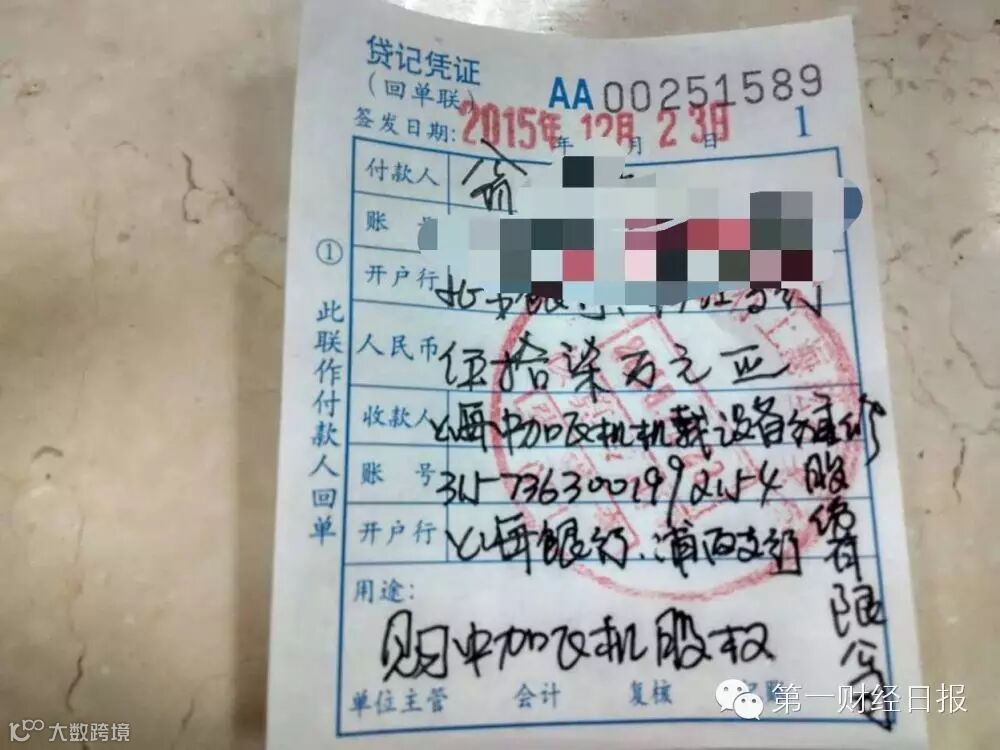 贷记凭证
(回单联)
AA00251589
签发日期: 2015年 12月 23日
年 月 日
1
付款人 俞
账 号
开户行
人民币 伍拾柒万元正
收款人 上海中加飞机机载设备维修
股份有限公司
账 号
开户行 上海银行.浦西支行
用途:
购中加飞机股权
单位主管 会计 复核
① 此联作付款人回单
第一财经日报
大数跨境